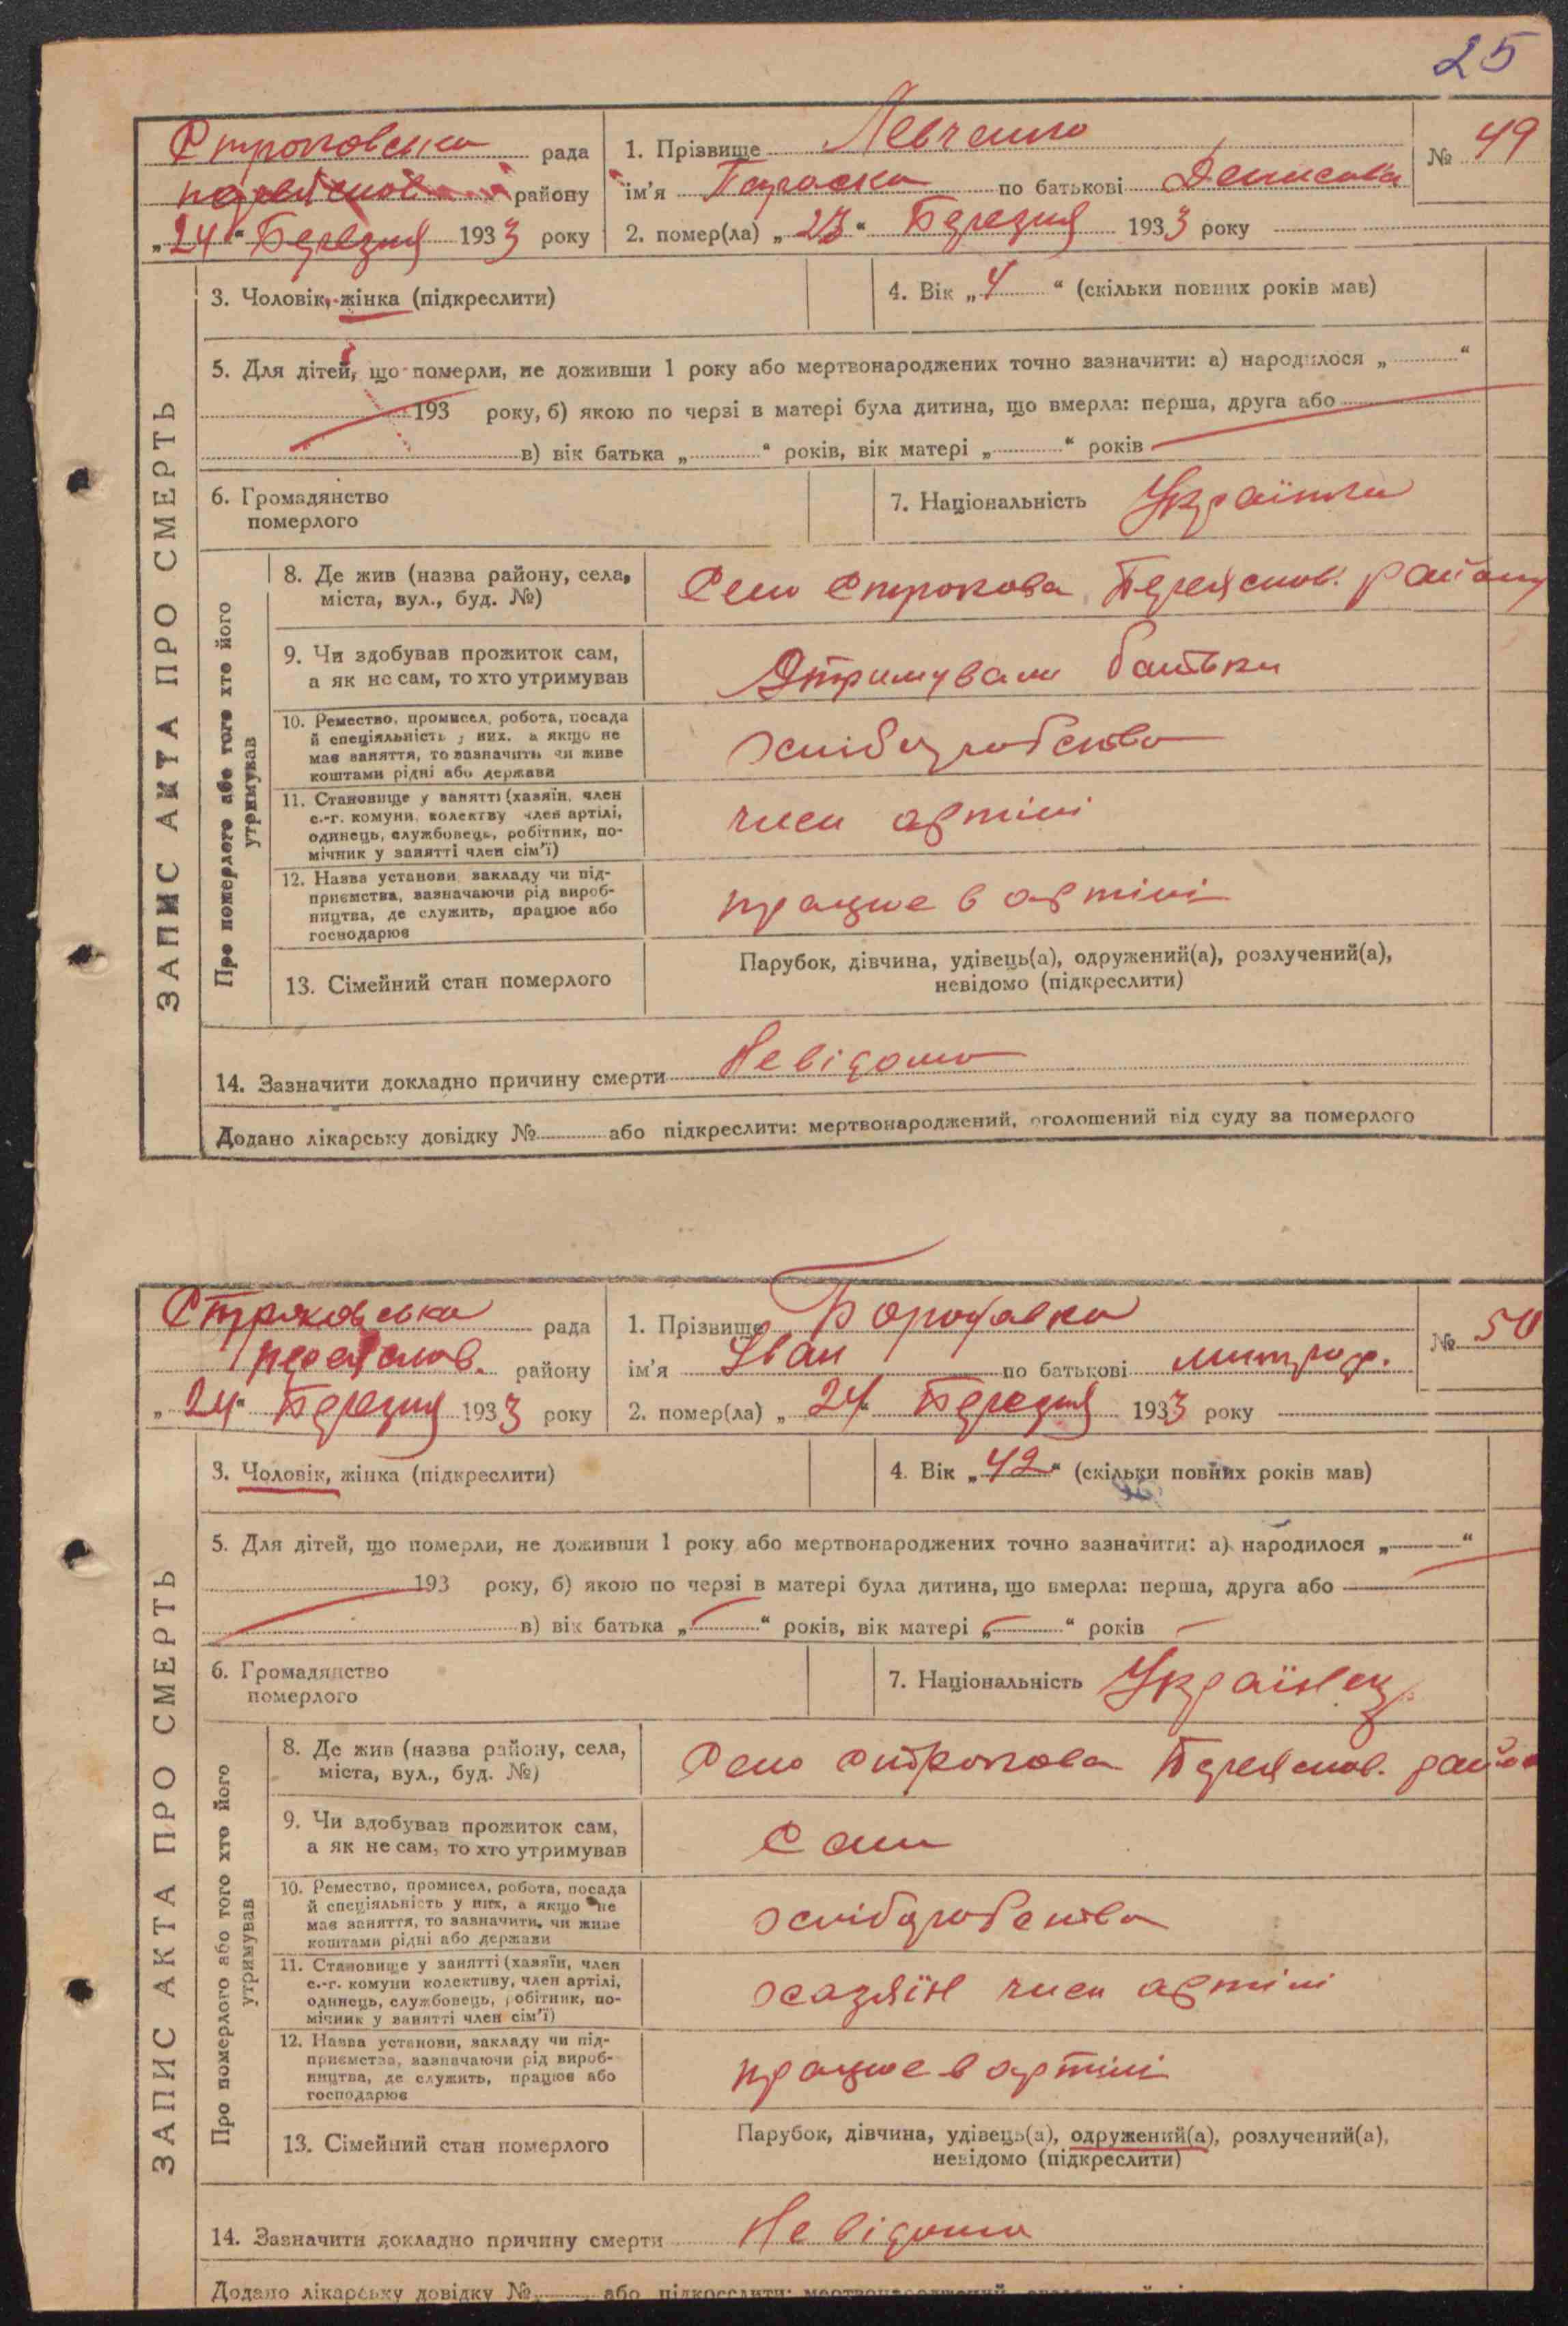 25
Строковська рада
1. Прізвище Левченко
№ 49
району
ім'я Параска по батькові Денисова
„24“ Березня 1933 року
2. помер(ла) „23“ Березня 1933 року
3. Чоловік, жінка (підкреслити)
4. Вік „4“ (скільки повних років мав)
5. Для дітей, що померли, не доживши 1 року або мертвонароджених точно зазначити: а) народилося „ “
193 року, б) якою по черзі в матері була дитина, що вмерла: перша, друга або
в) вік батька „ “ років, вік матері „ “ років
6. Громадянство
померлого
7. Національність Українка
ЗАПИС АКТА ПРО СМЕРТЬ
Про померлого або того хто його
утримував
8. Де жив (назва району, села,
міста, вул., буд. №)
Село Строкова Переяслов. району
9. Чи здобував прожиток сам,
а як не сам, то хто утримував
Отримували батьки
10. Ремество, промисел, робота, посада
й спеціяльність у них, а якщо не
має заняття, то зазначить чи живе
коштами рідні або держави
хліборобство
11. Становище у занятті (хазяїн, член
с.-г. комуни, колективу член артілі,
одинець, службовець, робітник, по-
мічник у занятті член сім'ї)
член артілі
12. Назва установи, закладу чи під-
приємства, зазначаючи рід вироб-
ництва, де служить, працює або
господарює
працює в артілі
13. Сімейний стан померлого
Парубок, дівчина, удівець(а), одружений(а), розлучений(а),
невідомо (підкреслити)
14. Зазначити докладно причину смерти Невідомо
Додано лікарську довідку № або підкреслити: мертвонароджений, оголошений від суду за померлого
Строковська рада
1. Прізвище Бородавка
№ 50
Переяслов. району
ім'я Іван по батькові митроф.
„24“ Березня 1933 року
2. помер(ла) „24“ Березня 1933 року
3. Чоловік, жінка (підкреслити)
4. Вік „42“ (скільки повних років мав)
5. Для дітей, що померли, не доживши 1 року або мертвонароджених точно зазначити: а) народилося „ “
193 року, б) якою по черзі в матері була дитина, що вмерла: перша, друга або
в) вік батька „ “ років, вік матері „ “ років
6. Громадянство
померлого
7. Національність Українець
ЗАПИС АКТА ПРО СМЕРТЬ
Про померлого або того хто його
утримував
8. Де жив (назва району, села,
міста, вул., буд. №)
Село Строкова Переяслов. район
9. Чи здобував прожиток сам,
а як не сам, то хто утримував
Сам
10. Ремество, промисел, робота, посада
й спеціяльність у них, а якщо не
має заняття, то зазначити, чи живе
коштами рідні або держави
хліборобство
11. Становище у занятті (хазяїн, член
с.-г. комуни колективу, член артілі,
одинець, службовець, робітник, по-
мічник у занятті член сім'ї)
хазяїн член артілі
12. Назва установи, закладу чи під-
приємства, зазначаючи рід вироб-
ництва, де служить, працює або
господарює
працює в артілі
13. Сімейний стан померлого
Парубок, дівчина, удівець(а), одружений(а), розлучений(а),
невідомо (підкреслити)
14. Зазначити докладно причину смерти Невідомо
Додано лікарську довідку № або підкреслити: мертвонароджений,